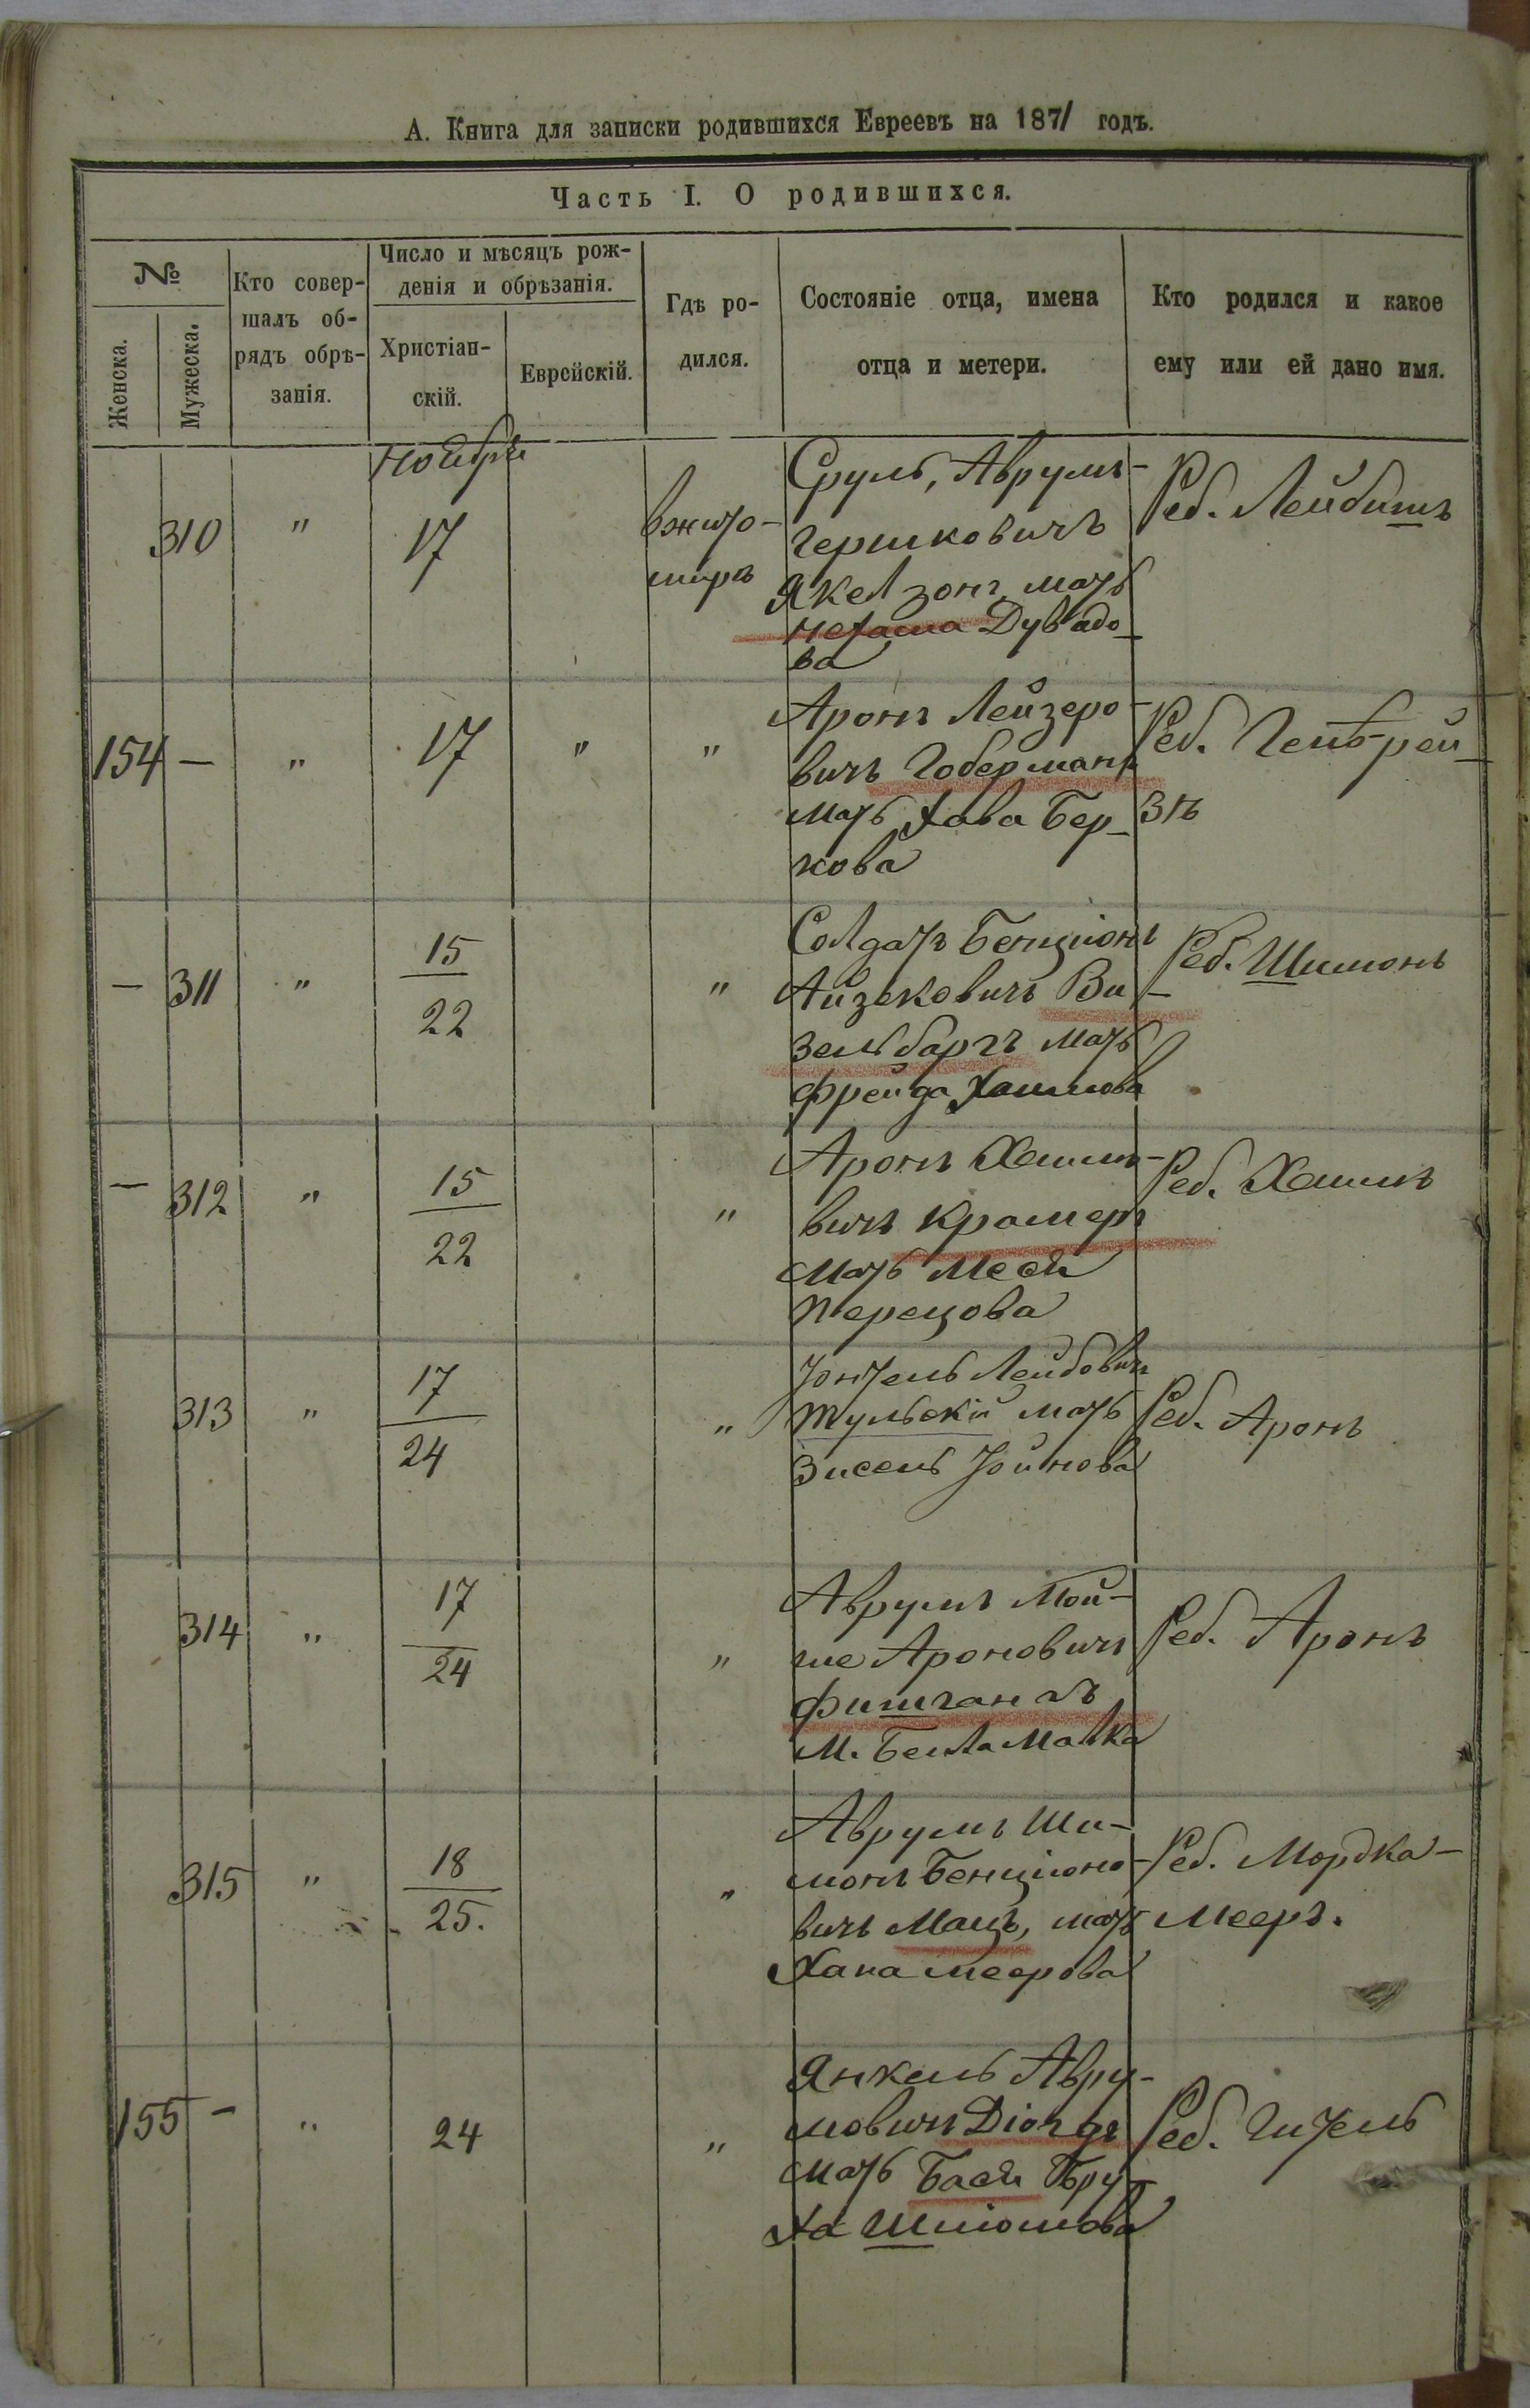 А. Книга для записки родившихся Евреевъ на 1871 годъ.
Часть I. О родившихся.
№
Женска.
Мужеска.
Кто совер-
шалъ об-
рядъ обрѣ-
занія.
Число и мѣсяцъ рож-
денія и обрѣзанія.
Христіан-
скій.
Еврейскій.
Гдѣ ро-
дился.
Состояніе отца, имена
отца и метери.
Кто родился и какое
ему или ей дано имя.
Ноября
310 " 17
вжито-
мирѣ
Сруль, Аврумъ-
Гершковичъ
Якелзонъ, мать
Нехама Дувидо-
ва
Реб. Лейбишъ
154 — " 17 " "
Аронъ Лейзеро-
вичъ Гоберманъ
мать Хава Бер-
кова
Реб.
— 311 " 15
22
"
Солдатъ Бенціонъ
Айзековичъ Ви-
зельбаргъ мать
Фрейда Хаимова
Реб. Шимонъ
— 312 " 15
22
"
Аронъ Хаимо-
вичъ Крамеръ
мать Мася
Перецова
Реб. Хаимъ
313 " 17
24
"
Лейбовичъ
Тульскій мать
Зисель Іойнова
Реб. Аронъ
314 " 17
24
"
Аврумъ Мой-
ше Ароновичъ
Фишганъ
М. Бейла Малка
Реб. Аронъ
315 " 18
25.
"
Аврумъ Ши-
монъ Бенціоно-
вичъ Мацъ, мать
Хана Меерова
Реб. Мордка-
Мееръ.
155 — " 24 "
Янкель Авру-
мовичъ
мать Бася Бру-
ха Шліомова
Реб. Гитель